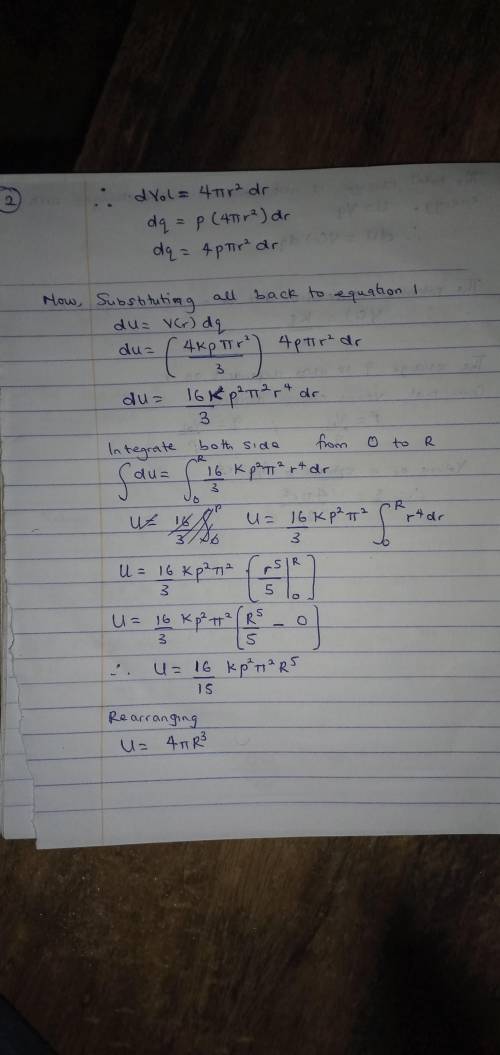 2
∴ dVol = 4πr² dr
dq = ρ(4πr²) dr
dq = 4ρπr² dr
Now, Substituting all back to equation 1
du = V(r) dq
du = (4kρπr²/3) 4ρπr² dr
du = 16/3 kρ²π²r⁴ dr
Integrate both side from 0 to R
∫du = ∫₀ᴿ 16/3 kρ²π²r⁴ dr
U = 16/3 U = 16/3 kρ²π² ∫₀ᴿ r⁴ dr
U = 16/3 kρ²π² [r⁵/5 |₀ᴿ]
U = 16/3 kρ²π² [R⁵/5 − 0]
∴ U = 16/15 kρ²π²R⁵
Rearranging
U = 4πR³